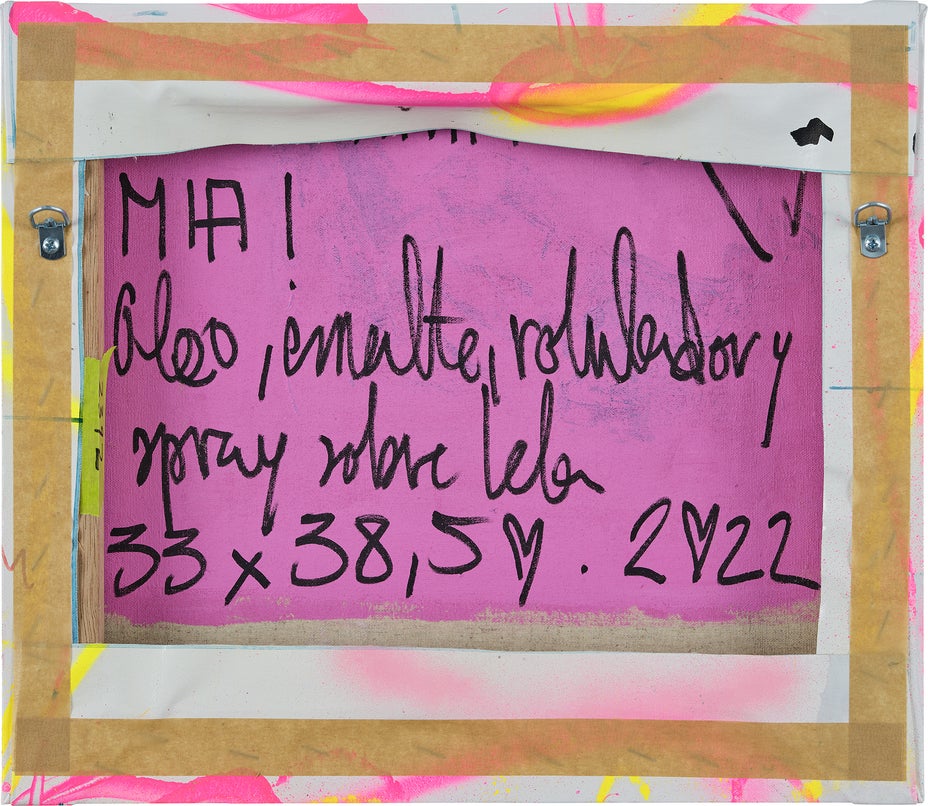 MAI
Oleo, esmalte, rotulador y
spray sobre tela
33 x 38,5♡. 2♡22